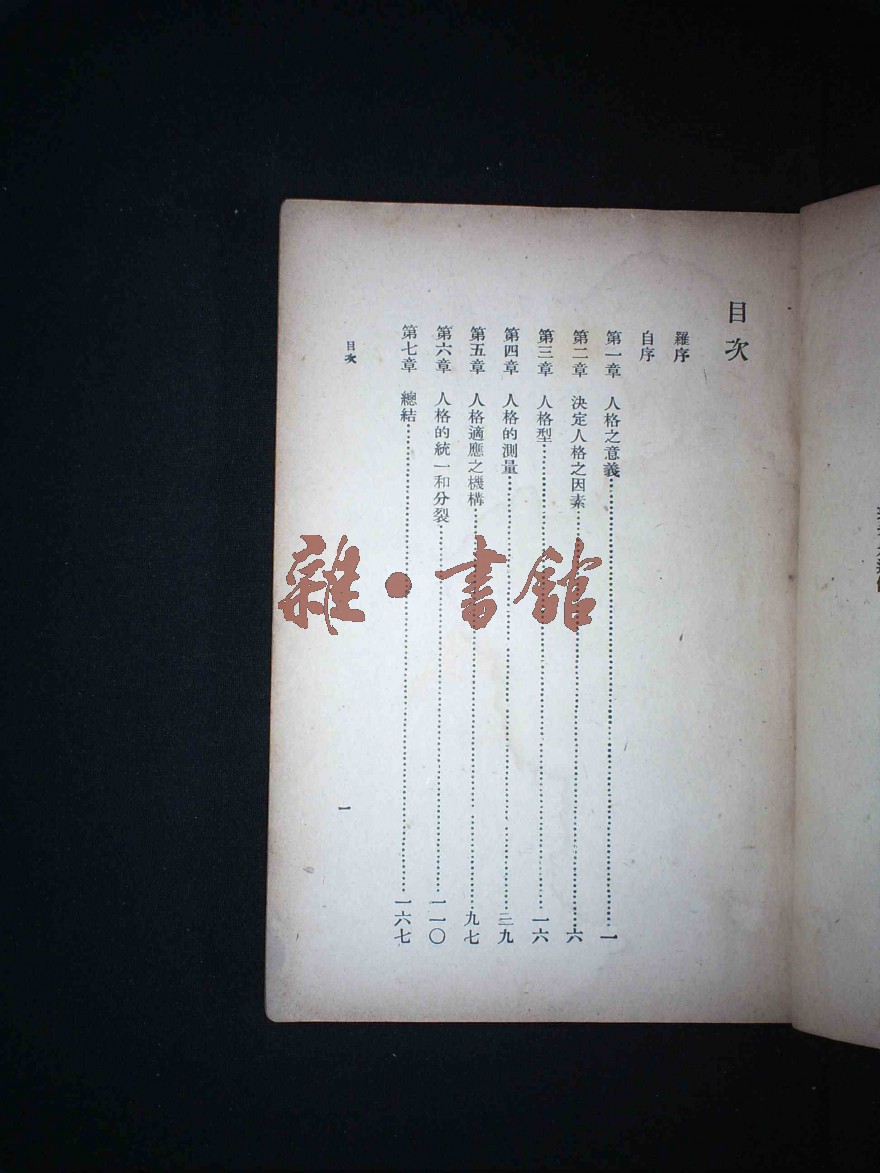 目次
羅序
自序
第一章 人格之意義……一
第二章 決定人格之因素……六
第三章 人格型……一六
第四章 人格的測量……三九
第五章 人格適應之機構……九七
第六章 人格的統一和分裂……一一〇
第七章 總結……一六七
目次
一
雜·書館